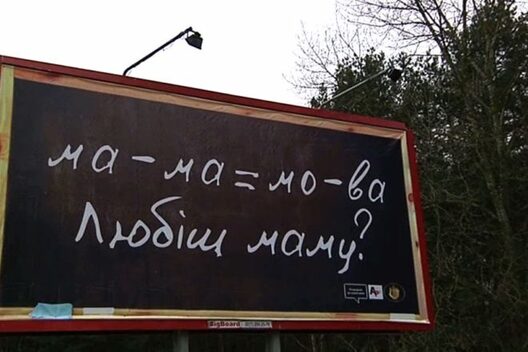 ма-ма=мо-ва
Любіш маму?
BigBoard